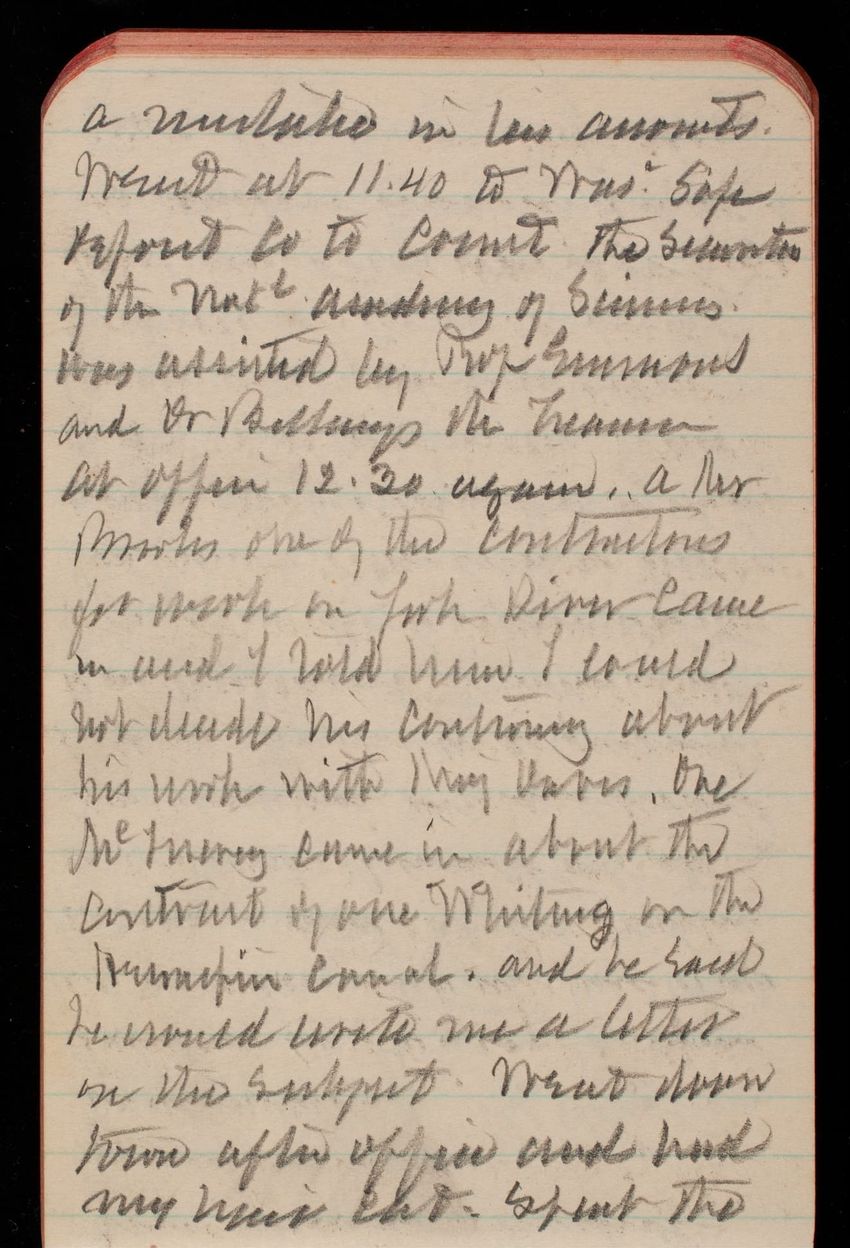 a mistake in his accounts.
Went at 11.40 to Was. Safe
Deposit Co to Count the Securities
of the Natl Academy of Sciences
was assisted by Prof Emmons
and Dr Billings the Treasurer
at office 12.30 again. a Mr
one of the Contractors
for work on York River Came
in and I told him I could
not decide his Controversy about
his work with Maj Davis. One
came in about the
Contract of one Whiting on the
Hennepin canal. and he said
he would write me a letter
on the subject. Went down
town after office and had
my hair cut. Spent the